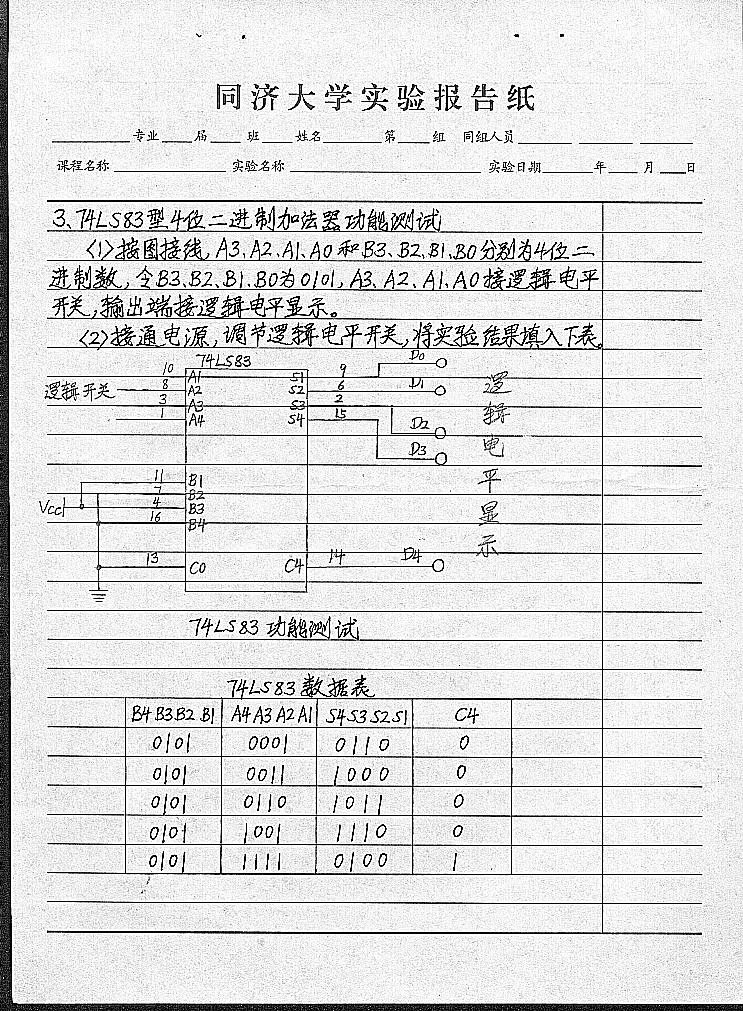 同济大学实验报告纸
专业 届 班 姓名 第 组 同组人员
课程名称 实验名称 实验日期 年 月 日
3、74LS83型4位二进制加法器功能测试
(1)按图接线, A3、A2、A1、A0和B3、B2、B1、B0分别为4位二
进制数, 令B3、B2、B1、B0为0101, A3、A2、A1、A0接逻辑电平
开关, 输出端接逻辑电平显示。
(2)接通电源, 调节逻辑电平开关, 将实验结果填入下表。
74LS83
逻辑开关
10 A1 S1 9 D0
8 A2 S2 6 D1
3 A3 S3 2 D2
1 A4 S4 15 D3
逻辑电平显示
Vcc
11 B1
7 B2
4 B3
16 B4
13 C0 C4 14 D4
74LS83功能测试
74LS83数据表
B4 B3 B2 B1 A4 A3 A2 A1 S4 S3 S2 S1 C4
0101 0001 0110 0
0101 0011 1000 0
0101 0110 1011 0
0101 1001 1110 0
0101 1111 0100 1